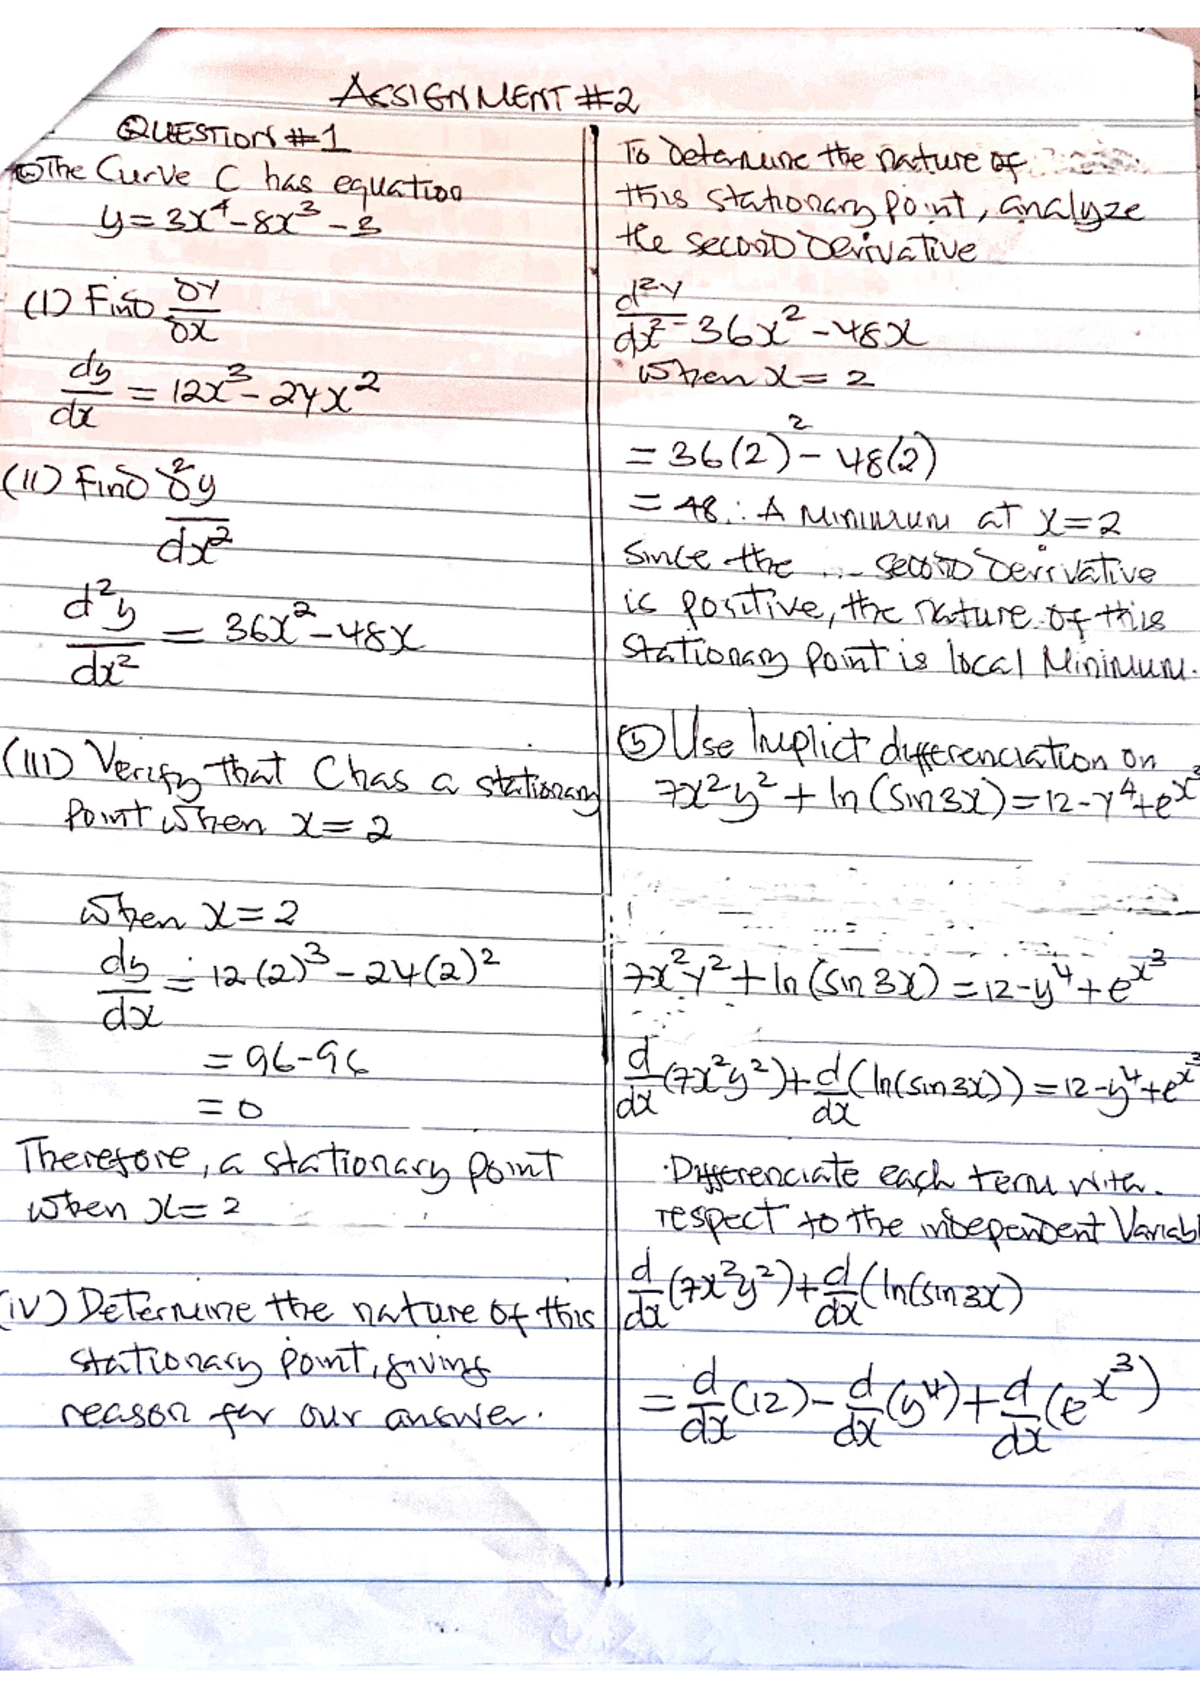 ASSIGNMENT #2
QUESTION #1
The Curve C has equation
y = 3x⁴ - 8x³ - 3
(I) Find δy/δx
dy/dx = 12x³ - 24x²
(II) Find δ²y/dx²
d²y/dx² = 36x² - 48x
(III) Verify that C has a stationary
Point when x = 2
when x = 2
dy/dx = 12(2)³ - 24(2)²
= 96 - 96
= 0
Therefore, a stationary point
when x = 2
(iv) Determine the nature of this
stationary point, giving
reason for our answer.
To Determine the nature of
this stationary point, analyze
the second Derivative
d²y/dx² = 36x² - 48x
when x = 2
= 36(2)² - 48(2)
= 48 ∴ A Minimum at x = 2
Since the ... second Derivative
is positive, the nature of this
stationary point is local Minimum.
(b) Use Implict differenciation on
7x²y² + ln(sin3x) = 12 - y⁴ + e^x³
7x²y² + ln(sin3x) = 12 - y⁴ + e^x³
d/dx(7x²y²) + d/dx(ln(sin3x)) = 12 - y⁴ + e^x³
Differenciate each term with
respect to the independent Variabl
d/dx(7x²y²) + d/dx(ln(sin3x)
= d/dx(12) - d/dx(y⁴) + d/dx(e^x³)